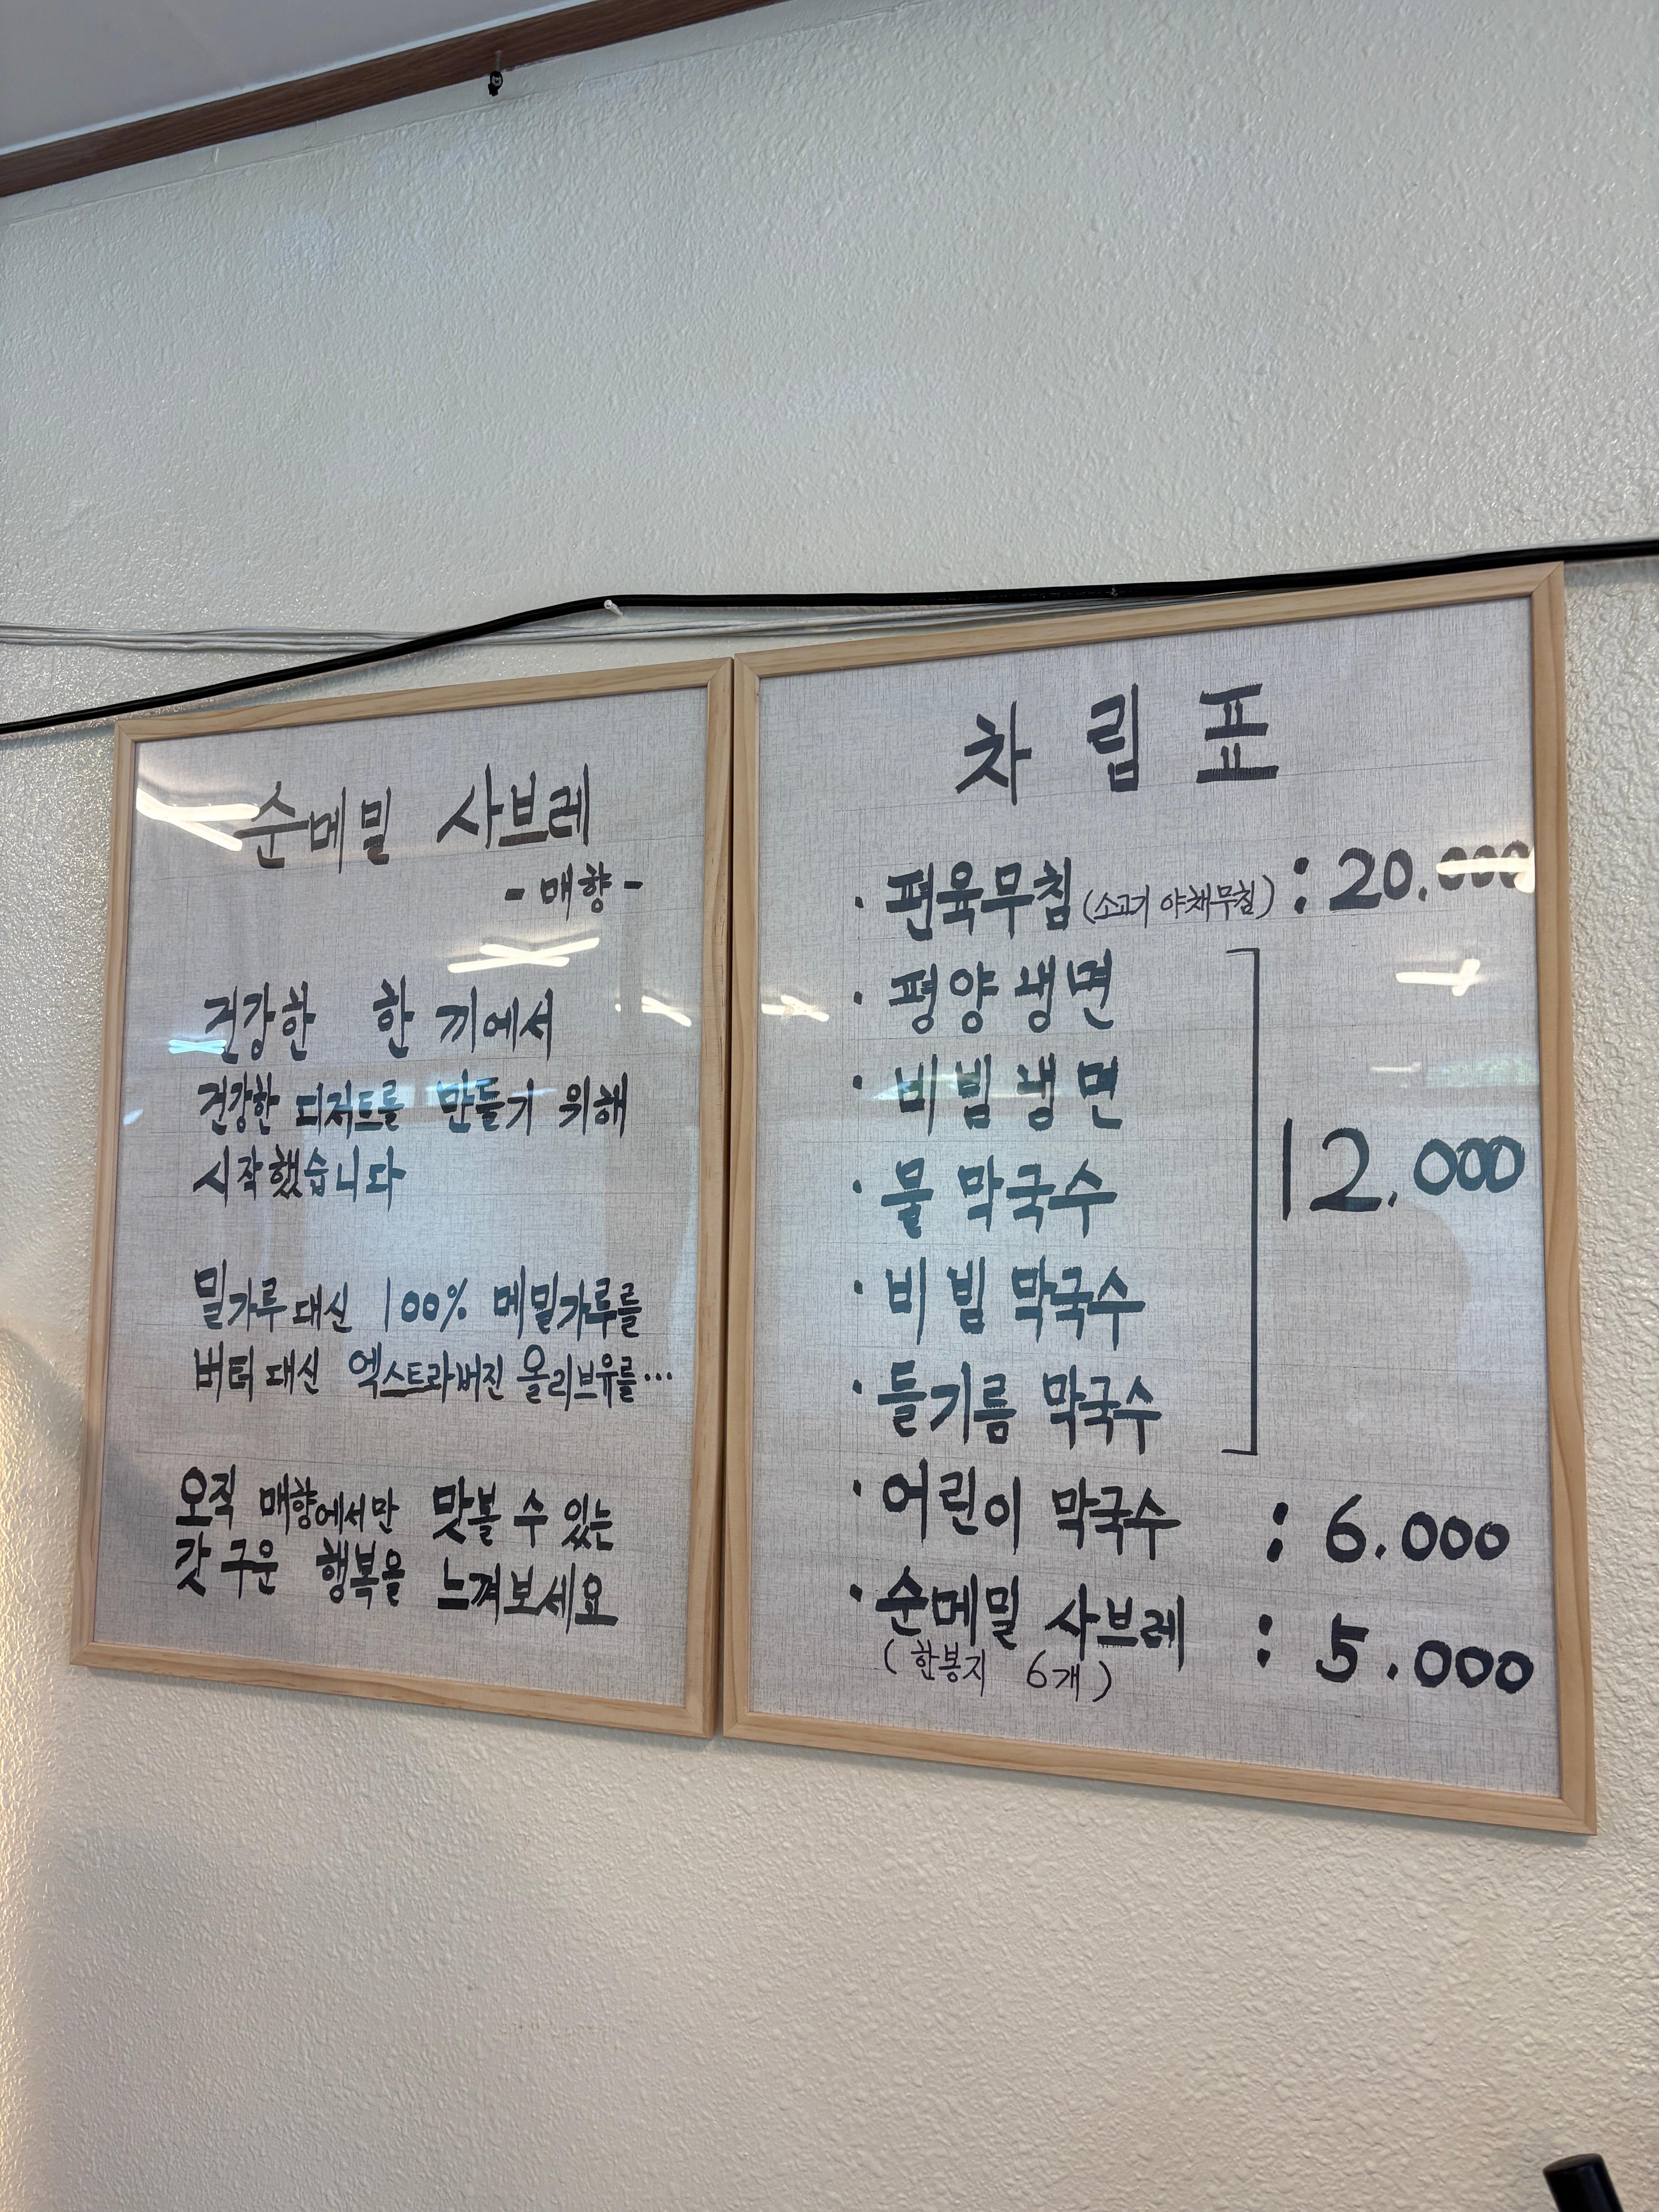 순메밀 사브레
- 매향 -
건강한 한 끼에서
건강한 디저트를 만들기 위해
시작했습니다
밀가루 대신 100% 메밀가루를
버터 대신 엑스트라버진 올리브유를...
오직 매향에서만 맛볼 수 있는
갓 구운 행복을 느껴보세요
차림표
· 편육무침 (소고기 야채무침) : 20.000
· 평양냉면
· 비빔냉면
· 물 막국수
· 비빔 막국수
· 들기름 막국수
12.000
· 어린이 막국수 : 6.000
· 순메밀 사브레 : 5.000
(한봉지 6개)